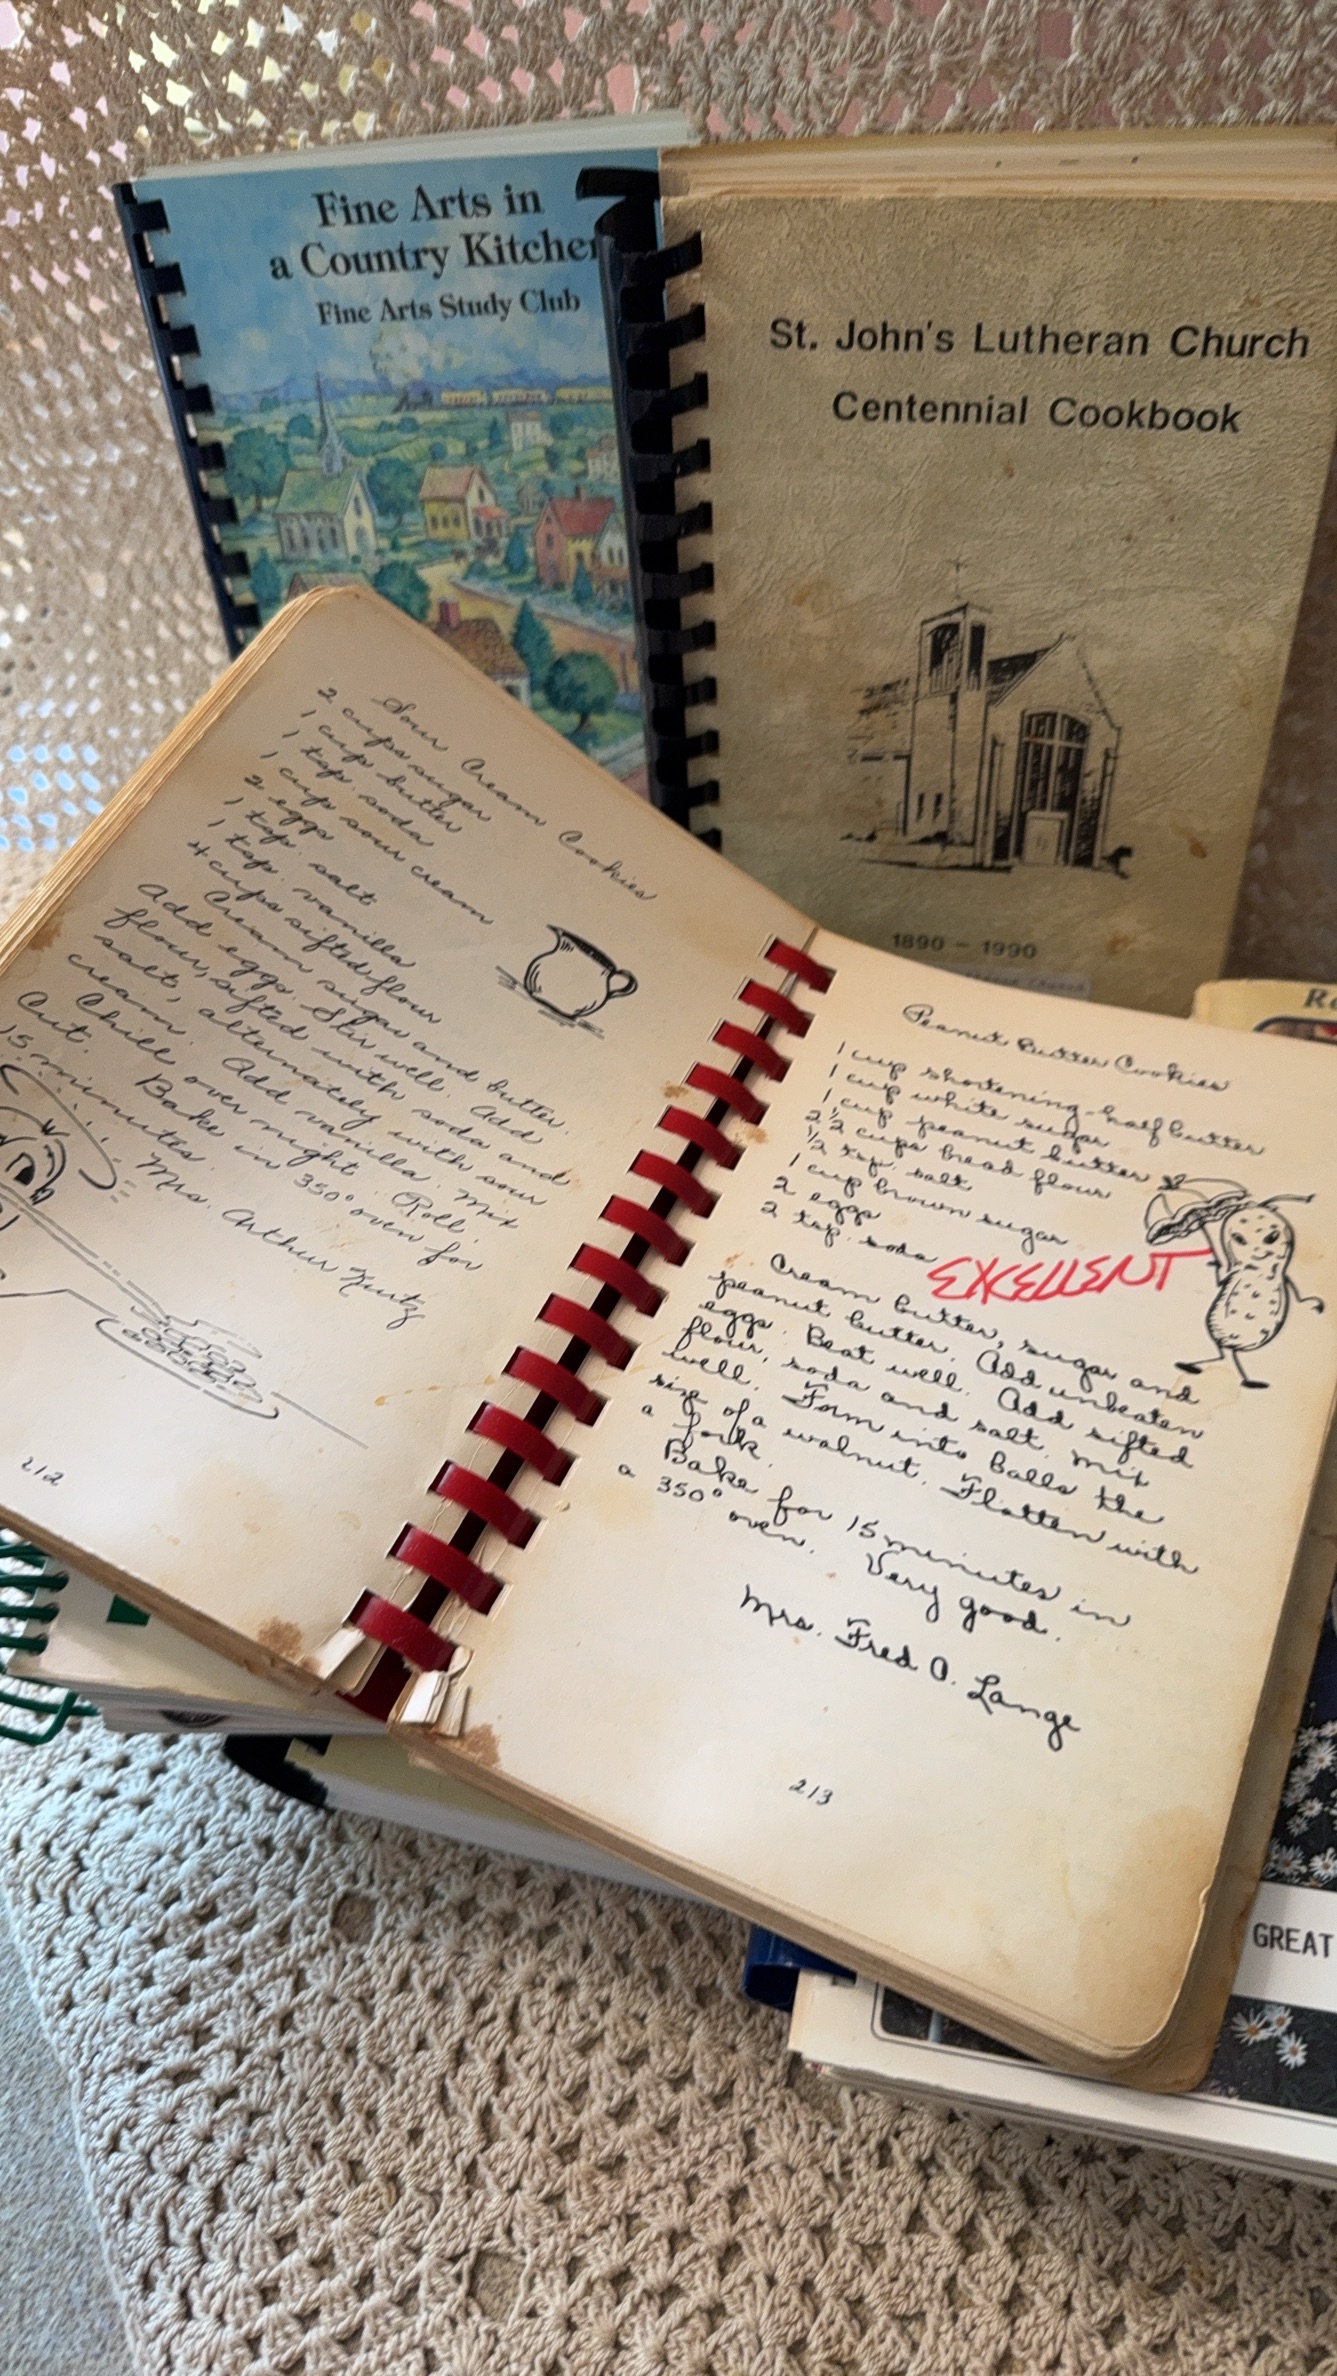 Fine Arts in
a Country Kitchen
Fine Arts Study Club
St. John's Lutheran Church
Centennial Cookbook
1890 – 1990
Sour Cream Cookies
2 cups sugar
1 cup butter
1 tsp. soda
1 cup sour cream
2 eggs
1 tsp. salt
1 tsp. vanilla
4 cups sifted flour
Cream sugar and butter.
Add eggs. Stir well. Add
flour, sifted with soda and
salt, alternately with sour
cream. Add vanilla. Mix
Chill over night. Roll.
Cut. Bake in 350° oven for
15 minutes.
Mrs. Arthur Kurtz
212
Peanut Butter Cookies
1 cup shortening-half butter
1 cup white sugar
1 cup peanut butter
2 1/2 cups bread flour
1/2 tsp. salt
1 cup brown sugar
2 eggs
2 tsp. soda
EXELLENT
Cream butter, sugar and
peanut butter. Add unbeaten
eggs. Beat well. Add sifted
flour, soda and salt. Mix
well. Form into balls the
size of a walnut. Flatten with
a fork.
Bake for 15 minutes in
a 350° oven. Very good.
Mrs. Fred O. Lange
213
GREAT